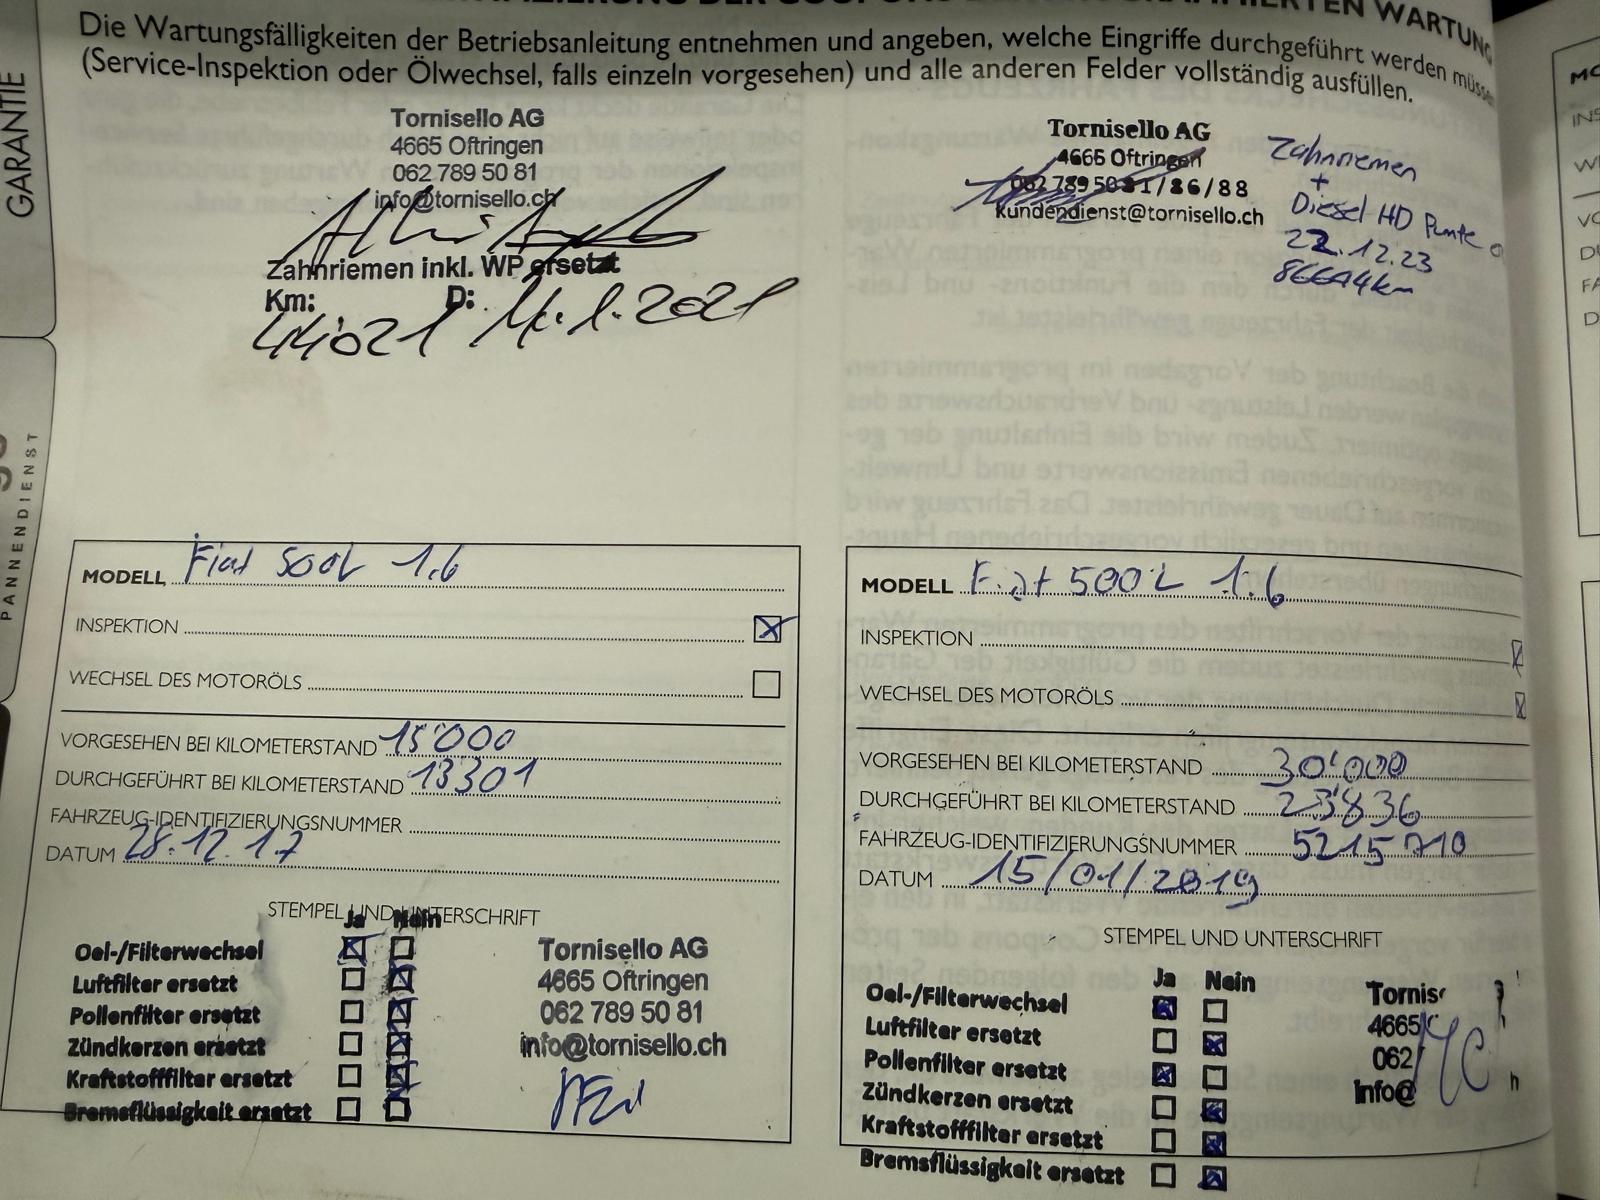 GARANTIE
PANNENDIENST
Die Wartungsfälligkeiten der Betriebsanleitung entnehmen und angeben, welche Eingriffe durchgeführt werden müssen
(Service-Inspektion oder Ölwechsel, falls einzeln vorgesehen) und alle anderen Felder vollständig ausfüllen.
Tornisello AG
4665 Oftringen
062 789 50 81
info@tornisello.ch
Zahnriemen inkl. WP ersetzt
Km: D:
44'021
Tornisello AG
4665 Oftringen
062 789 50 81/86/88
kundendienst@tornisello.ch
Zahnriemen
+
Diesel HD
22.12.23
MODELL Fiat 500L 1.6
INSPEKTION
WECHSEL DES MOTORÖLS
VORGESEHEN BEI KILOMETERSTAND 15'000
DURCHGEFÜHRT BEI KILOMETERSTAND 13301
FAHRZEUG-IDENTIFIZIERUNGSNUMMER
DATUM 28.12.17
STEMPEL UND UNTERSCHRIFT
Ja Nein
Oel-/Filterwechsel
Luftfilter ersetzt
Pollenfilter ersetzt
Zündkerzen ersetzt
Kraftstofffilter ersetzt
Bremsflüssigkeit ersetzt
Tornisello AG
4665 Oftringen
062 789 50 81
info@tornisello.ch
MODELL Fiat 500L 1.6
INSPEKTION
WECHSEL DES MOTORÖLS
VORGESEHEN BEI KILOMETERSTAND 30'000
DURCHGEFÜHRT BEI KILOMETERSTAND 23'836
FAHRZEUG-IDENTIFIZIERUNGSNUMMER 5215710
DATUM 15/01/2019
STEMPEL UND UNTERSCHRIFT
Ja Nein
Oel-/Filterwechsel
Luftfilter ersetzt
Pollenfilter ersetzt
Zündkerzen ersetzt
Kraftstofffilter ersetzt
Bremsflüssigkeit ersetzt
Tornis
4665
062
Info@